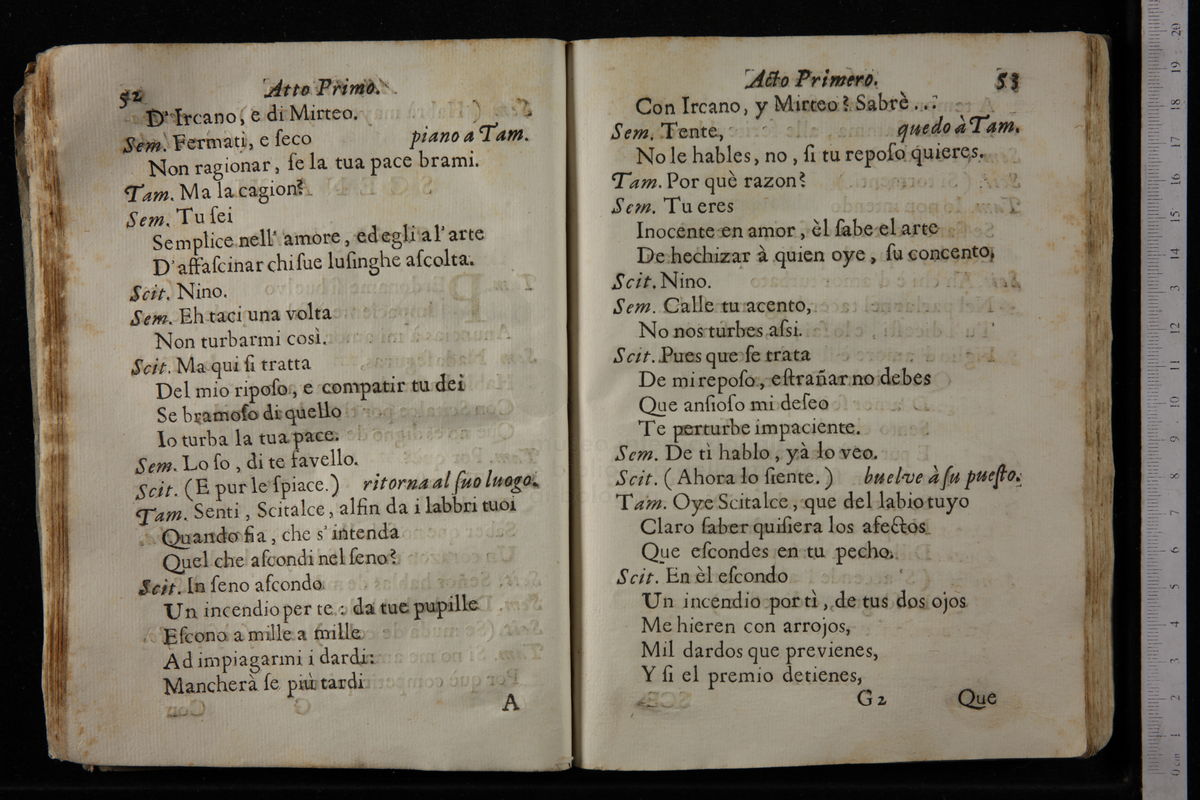 52 Atto Primo.
D' Ircano, e di Mirteo.
Sem. Fermati, e ſeco piano a Tam.
Non ragionar, ſe la tua pace brami.
Tam. Ma la cagion?
Sem. Tu ſei
Semplice nell' amore, ed egli a l' arte
D' affaſcinar chi ſue luſinghe aſcolta.
Scit. Nino.
Sem. Eh taci una volta
Non turbarmi così.
Scit. Ma qui ſi tratta
Del mio ripoſo, e compatir tu dei
Se bramoſo di quello
Io turba la tua pace.
Sem. Lo ſo, di te favello.
Scit. (E pur le ſpiace.) ritorna al ſuo luogo.
Tam. Senti, Scitalce, alfin da i labbri tuoi
Quando fia, che s' intenda
Quel che aſcondi nel ſeno?
Scit. In ſeno aſcondo
Un incendio per te: da tue pupille
Eſcono a mille a mille
Ad impiagarmi i dardi:
Mancherà ſe più tardi
A
Acto Primero. 53
Con Ircano, y Mirteo? Sabrè...
Sem. Tente, quedo à Tam.
No le hables, no, ſi tu repoſo quieres.
Tam. Por què razon?
Sem. Tu eres
Inocente en amor, èl ſabe el arte
De hechizar à quien oye, ſu concento.
Scit. Nino.
Sem. Calle tu acento,
No nos turbes aſsi.
Scit. Pues que ſe trata
De mi repoſo, eſtrañar no debes
Que anſioſo mi deſeo
Te perturbe impaciente.
Sem. De tì hablo, yà lo veo.
Scit. (Ahora lo ſiente.) buelve à ſu pueſto.
Tam. Oye Scitalce, que del labio tuyo
Claro ſaber quiſiera los afectos
Que eſcondes en tu pecho.
Scit. En èl eſcondo
Un incendio por tì, de tus dos ojos
Me hieren con arrojos,
Mil dardos que previenes,
Y ſi el premio detienes,
G 2 Que